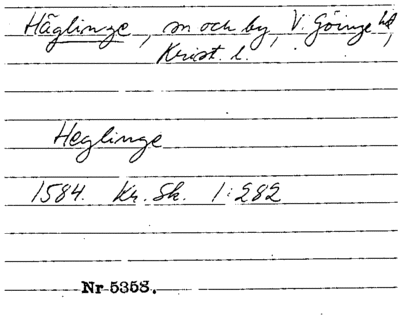 Häglinge, sn och by, V. Göinge hd,
Krist. l.
Heglinge
1584. Kr. Sk. 1:282
Nr 5358.